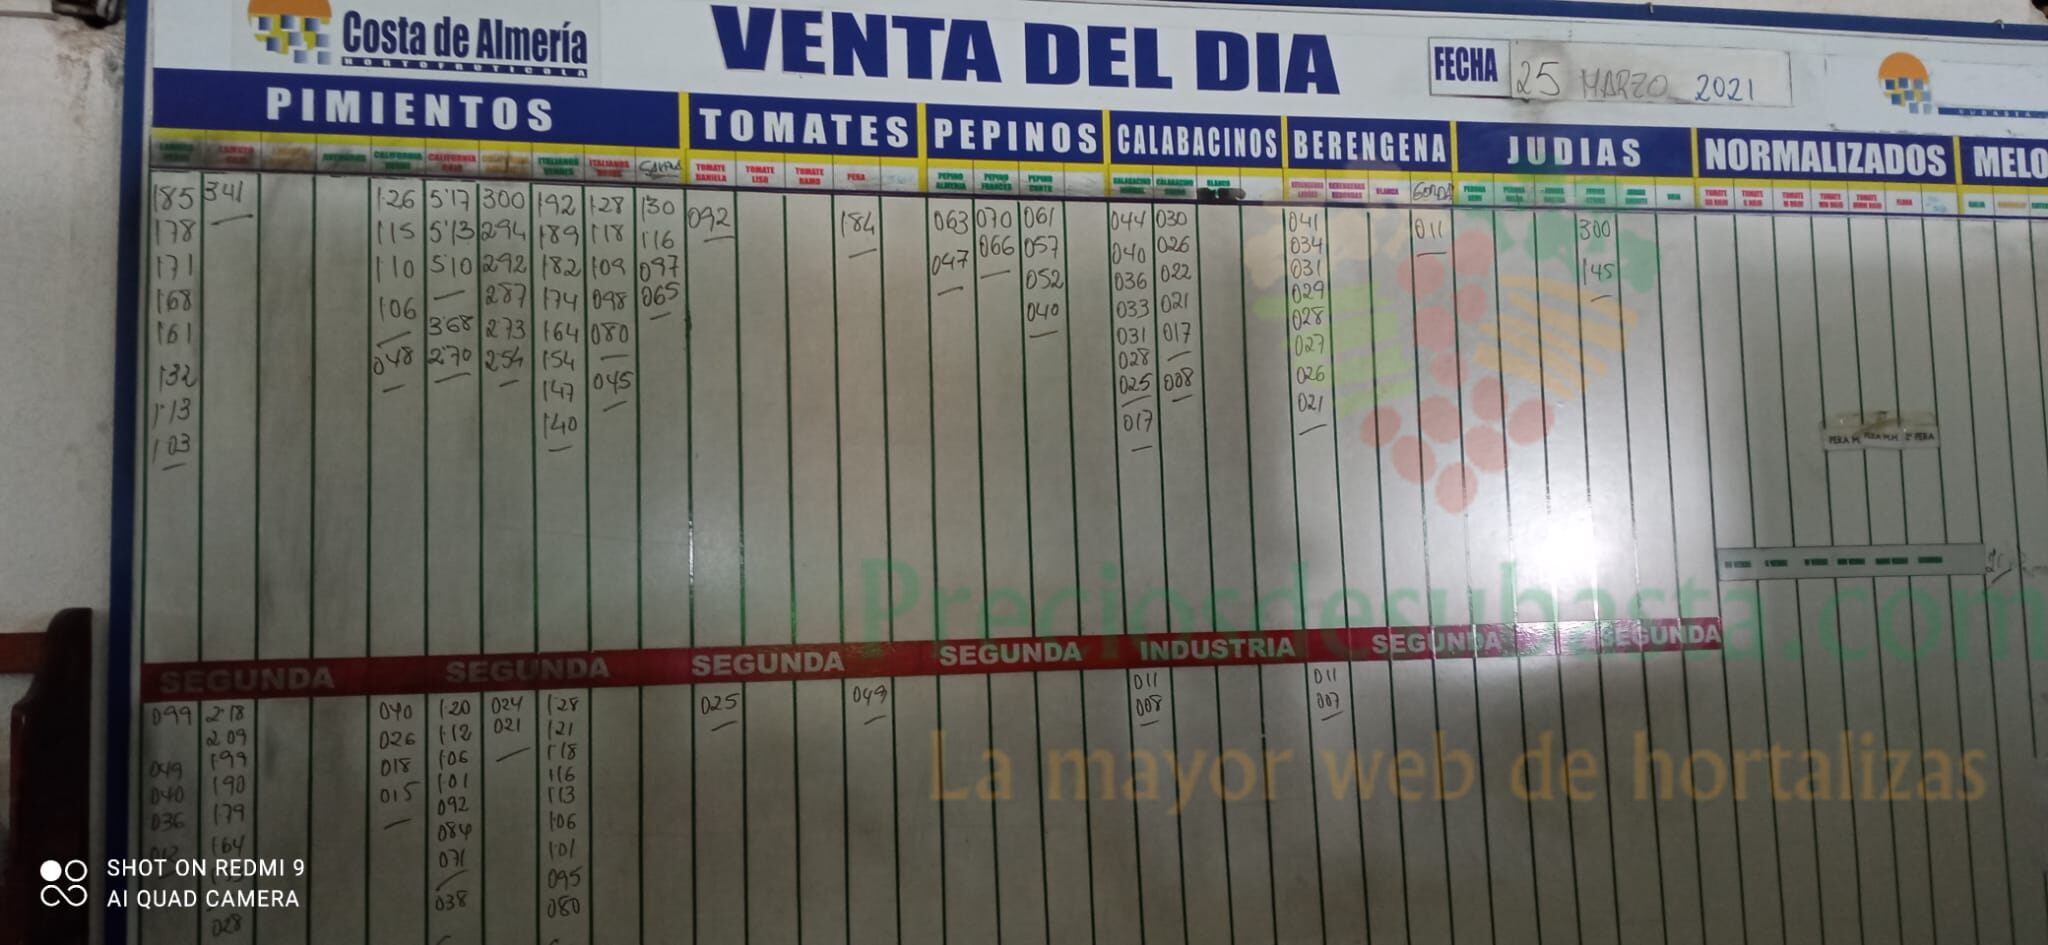 Costa de Almería
HORTOFRUTICOLA
VENTA DEL DIA
FECHA 25 MARZO 2021
PIMIENTOS TOMATES PEPINOS CALABACINOS BERENGENA JUDIAS NORMALIZADOS MELO
CALIFORNIA CALIFORNIA ITALIANOS ITALIANOS TOMATE DANIELA TOMATE LISO TOMATE RAMO PERA PEPINO ALMERIA PEPINO FRANCES PEPINO CORTO BLANCO BLANCA GORDA
185 341 126 517 300 192 128 130 092 184 063 070 061 044 030 041 011 300
178 115 513 294 189 118 116 047 066 057 040 026 034 145
171 110 510 292 182 109 097 052 036 022 031
168 106 287 174 098 065 040 033 021 029
161 368 273 164 080 031 017 028
132 048 270 254 154 045 028 027
113 147 025 008 026
103 140 017 021
PERA M PERA M.M. 2ª PERA
SEGUNDA SEGUNDA SEGUNDA SEGUNDA INDUSTRIA SEGUNDA SEGUNDA
099 218 040 120 024 128 025 049 011 011
209 026 112 021 121 008 007
049 199 018 106 118
040 190 015 101 116
036 179 092 113
164 084 106
071 101
038 095
028 080
Preciosdesubasta.com
La mayor web de hortalizas
SHOT ON REDMI 9
AI QUAD CAMERA